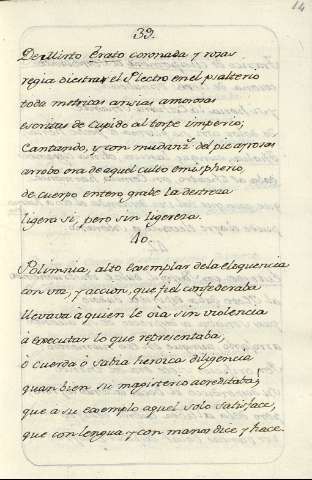 14
39.
De Mirto Erato coronada y rosas
regia diestra el Plectro en el psalterio
todo metricas ansias amorosas
escritas de Cupido al torpe imperio;
Cantando, y con mudanz.ˢ del pie ayrosas
arrobo era de aquel culto emispherio,
de cuerpo entero grabe la destreza
ligera si, pero sin ligereza.
40.
Polimnia, alto exemplar dela eloquencia
con voz, y accion, que fiel confederaba
llevava à quien le oìa sin violencia
à executar lo que representaba,
ò cuerda ò sabia heroica diligencia
quan bien su magisterio acreditaba!
que a su exemplo aquel solo satisface,
que con lengua y con manos dice y hace.